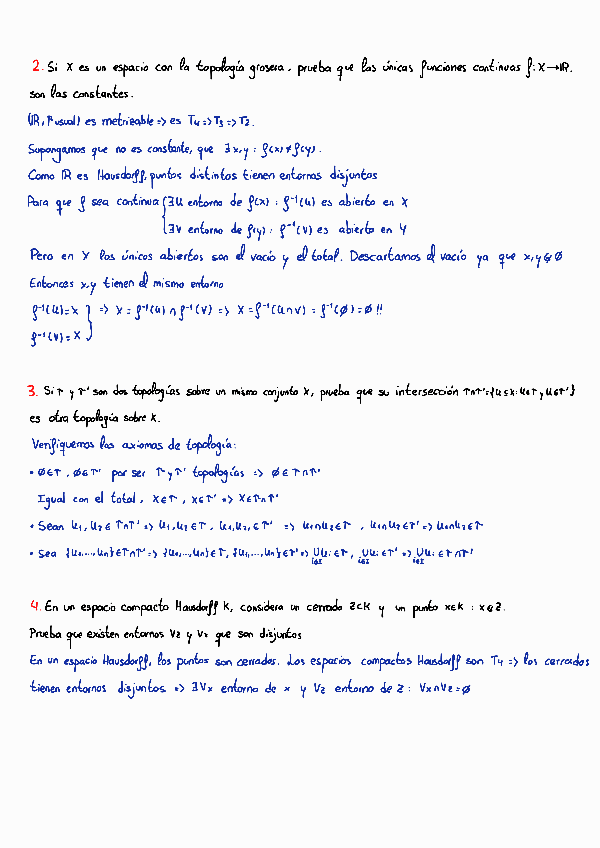 2. Si X es un espacio con la topología grosera, prueba que las únicas funciones continuas f: X→ℝ.
son las constantes.
(ℝ, τusual) es metrizable => es T4 => T3 => T2.
Supongamos que no es constante, que ∃x,y : f(x)≠f(y).
Como ℝ es Hausdorff, puntos distintos tienen entornos disjuntos
Para que f sea continua {∃U entorno de f(x) : f⁻¹(U) es abierto en X
∃V entorno de f(y) : f⁻¹(V) es abierto en Y
Pero en X los únicos abiertos son el vacío y el total. Descartamos el vacío ya que x,y∉∅
Entonces x,y tienen el mismo entorno
f⁻¹(U)=X } => X = f⁻¹(U) ∩ f⁻¹(V) => X = f⁻¹(U∩V) = f⁻¹(∅) = ∅ !!
f⁻¹(V)=X
3. Si τ y τ' son dos topologías sobre un mismo conjunto X, prueba que su intersección τ∩τ'={U⊆X: U∈τ y U∈τ'}
es otra topología sobre X.
Verifiquemos los axiomas de topología:
• ∅∈τ, ∅∈τ' por ser τ y τ' topologías => ∅∈τ∩τ'
Igual con el total, X∈τ, X∈τ' => X∈τ∩τ'
• Sean U1, U2 ∈ τ∩τ' => U1, U2 ∈ τ, U1, U2, ∈ τ' => U1∩U2∈τ, U1∩U2∈τ' => U1∩U2∈τ∩τ'
• Sea {U1,...,Un}∈τ∩τ' => {U1,...,Un}∈τ, {U1,...,Un}∈τ' => ⋃i∈I Ui∈τ, ⋃i∈I Ui∈τ' => ⋃i∈I Ui∈τ∩τ'
4. En un espacio compacto Hausdorff K, considera un cerrado Z⊂K y un punto x∈K : x∉Z.
Prueba que existen entornos Vz y Vx que son disjuntos
En un espacio Hausdorff, los puntos son cerrados. Los espacios compactos Hausdorff son T4 => los cerrados
tienen entornos disjuntos => ∃Vx entorno de x y Vz entorno de Z : Vx∩Vz=∅